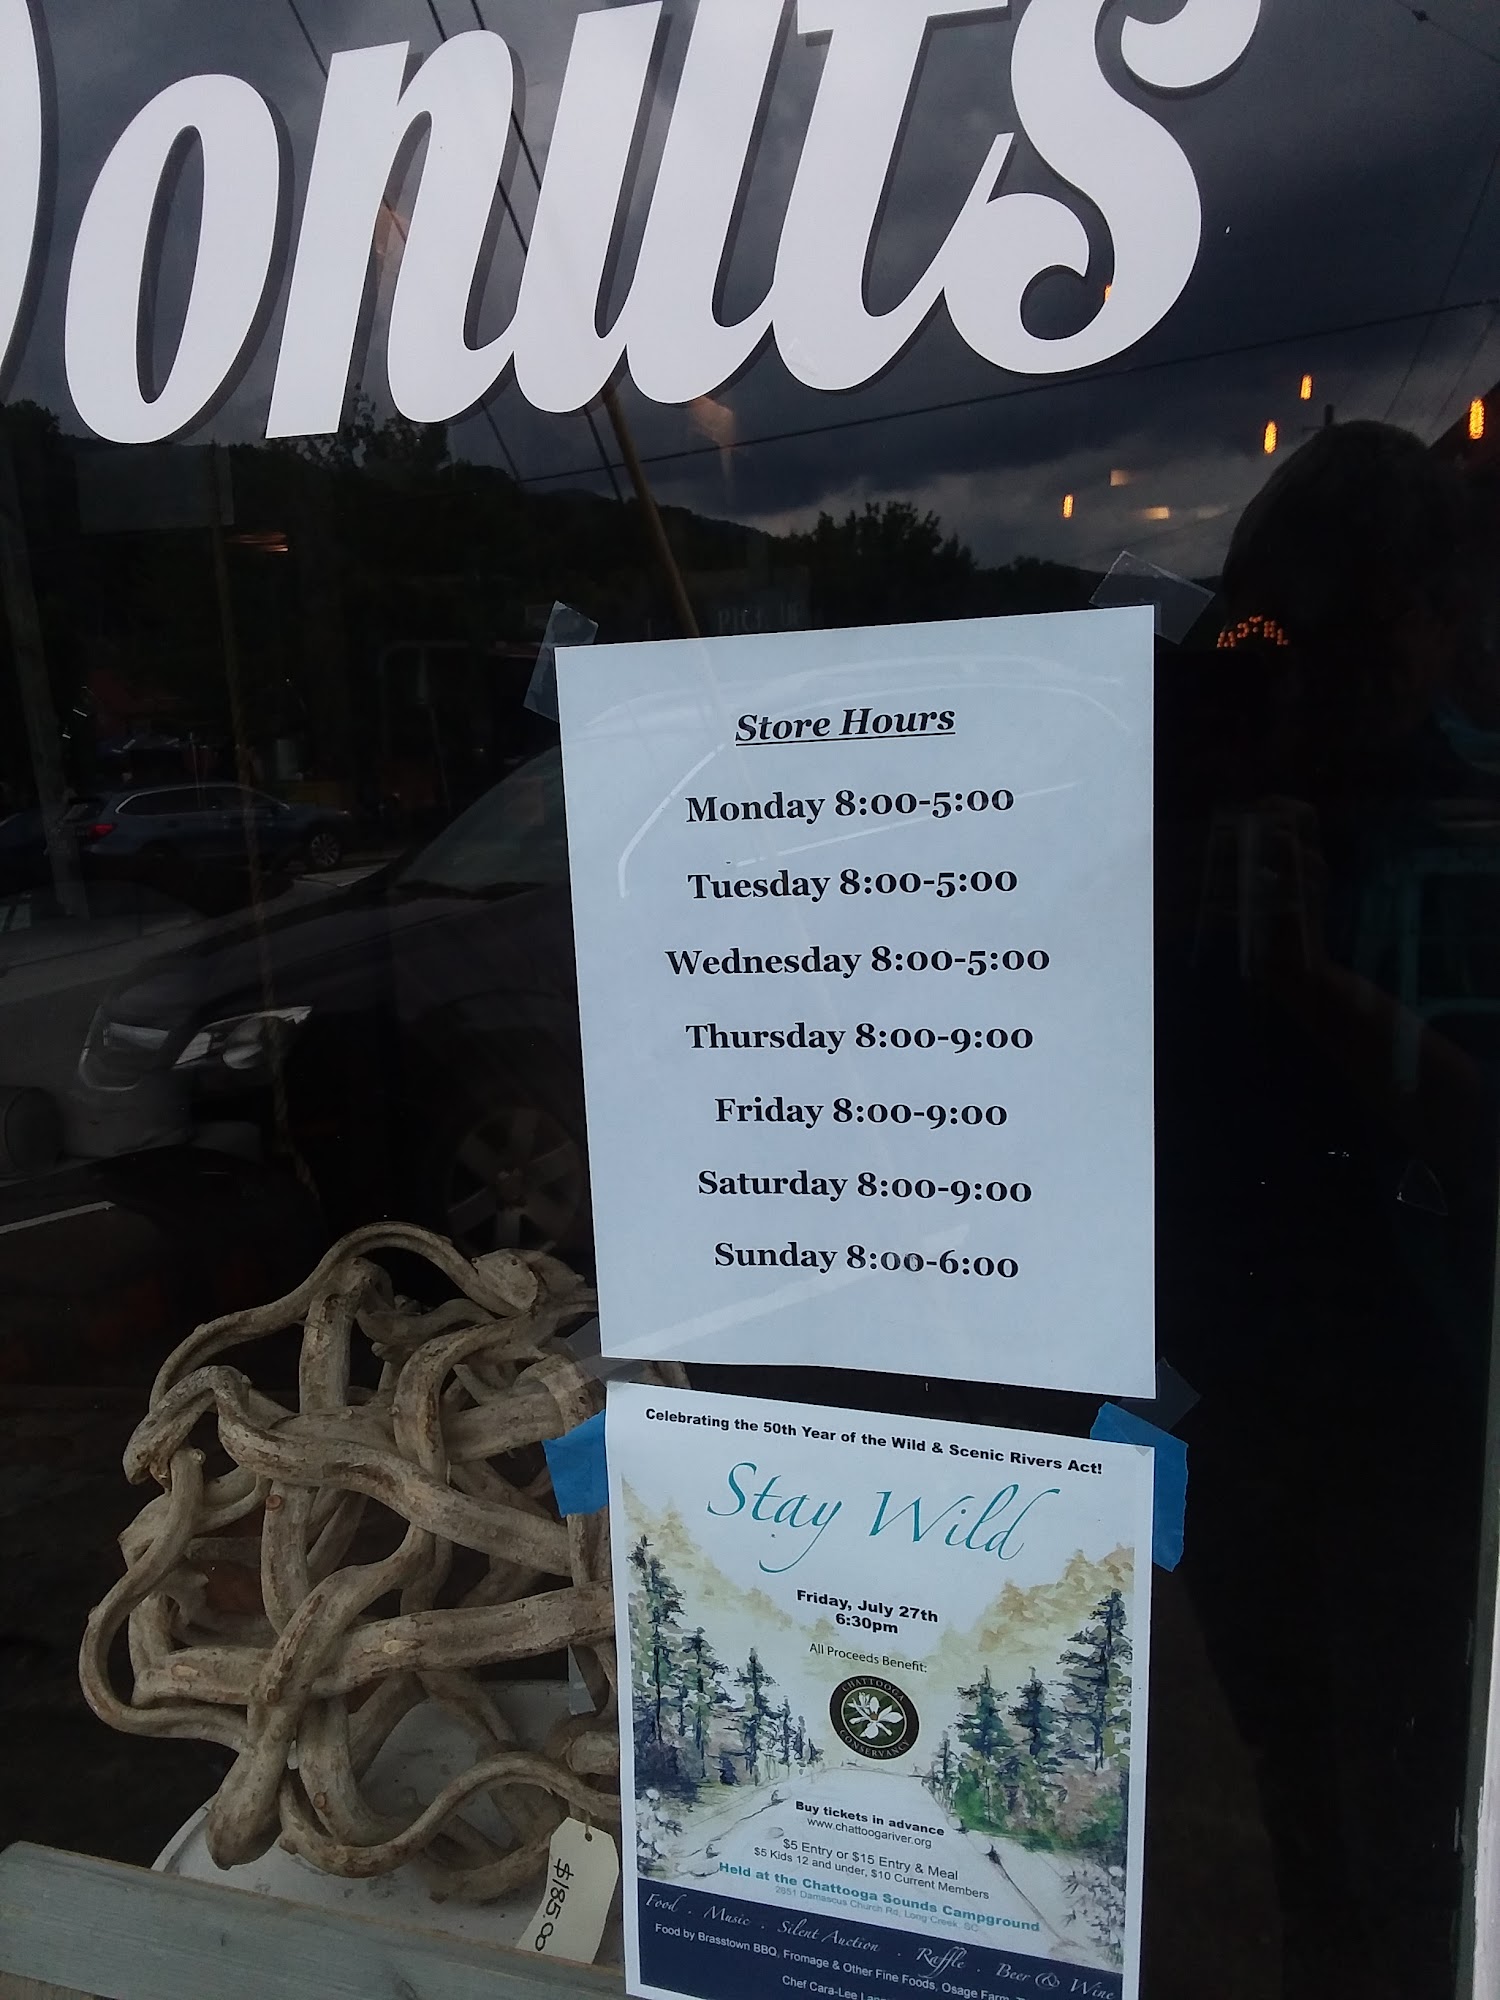 Donuts
Store Hours
Monday 8:00-5:00
Tuesday 8:00-5:00
Wednesday 8:00-5:00
Thursday 8:00-9:00
Friday 8:00-9:00
Saturday 8:00-9:00
Sunday 8:00-6:00
Celebrating the 50th Year of the Wild & Scenic Rivers Act!
Stay Wild
Friday, July 27th
6:30pm
All Proceeds Benefit:
CHATTOOGA
CONSERVANCY
Buy tickets in advance
www.chattoogariver.org
$5 Entry or $15 Entry & Meal
$5 Kids 12 and under, $10 Current Members
Held at the Chattooga Sounds Campground
2851 Damascus Church Rd, Long Creek, SC
Food . Music . Silent Auction . Raffle . Beer & Wine
Food by Brasstown BBQ, Fromage & Other Fine Foods, Osage Farm,
Chef Cara-Lee
$185.00